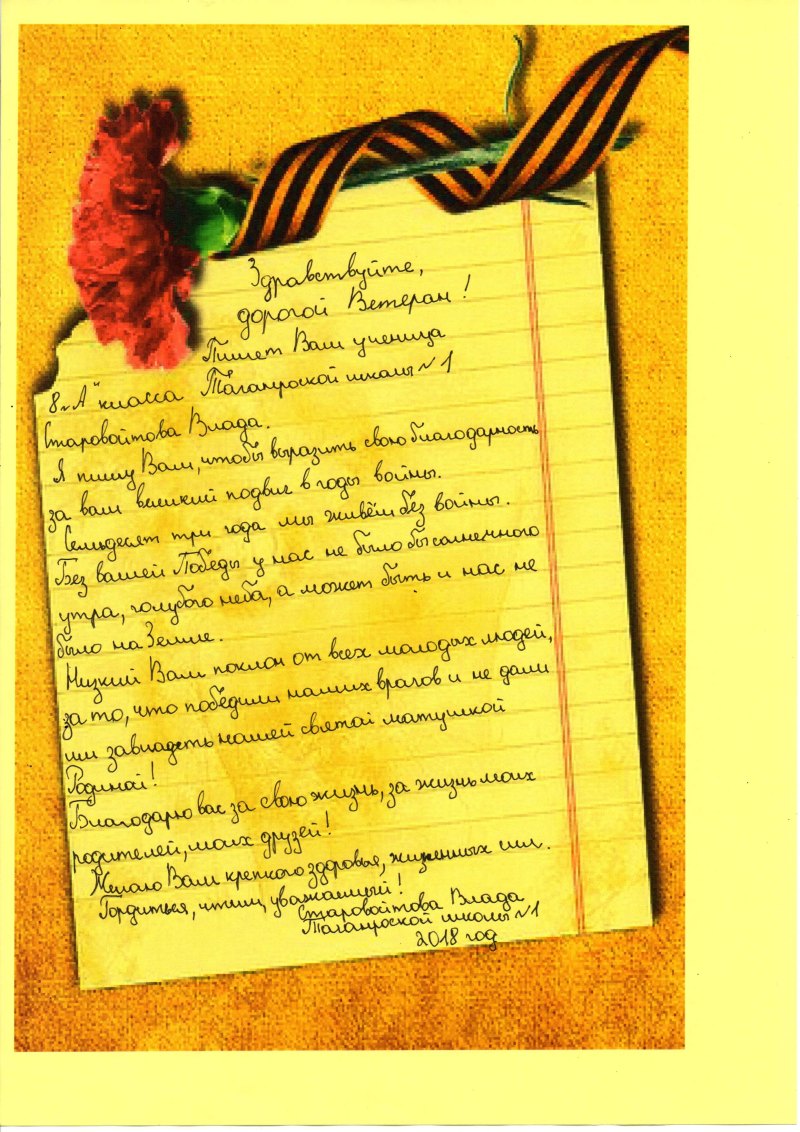 Здравствуйте,
дорогой Ветеран!
Пишет Вам ученица
8 „А" класса Таганрогской школы №1
Старовойтова Влада.
Я пишу Вам, чтобы выразить свою благодарность
за ваш великий подвиг в годы войны.
Семьдесят три года мы живём без войны.
Без вашей Победы у нас не было бы солнечного
утра, голубого неба, а может быть и нас не
было на Земле.
Низкий Вам поклон от всех молодых людей,
за то, что победили наших врагов и не дали
им завладеть нашей святой матушкой
Родиной!
Благодарю вас за свою жизнь, за жизнь моих
родителей, моих друзей!
Желаю Вам крепкого здоровья, жизненных сил.
Гордиться, чтим, уважаемый!
Старовойтова Влада
школы №1
2018 год